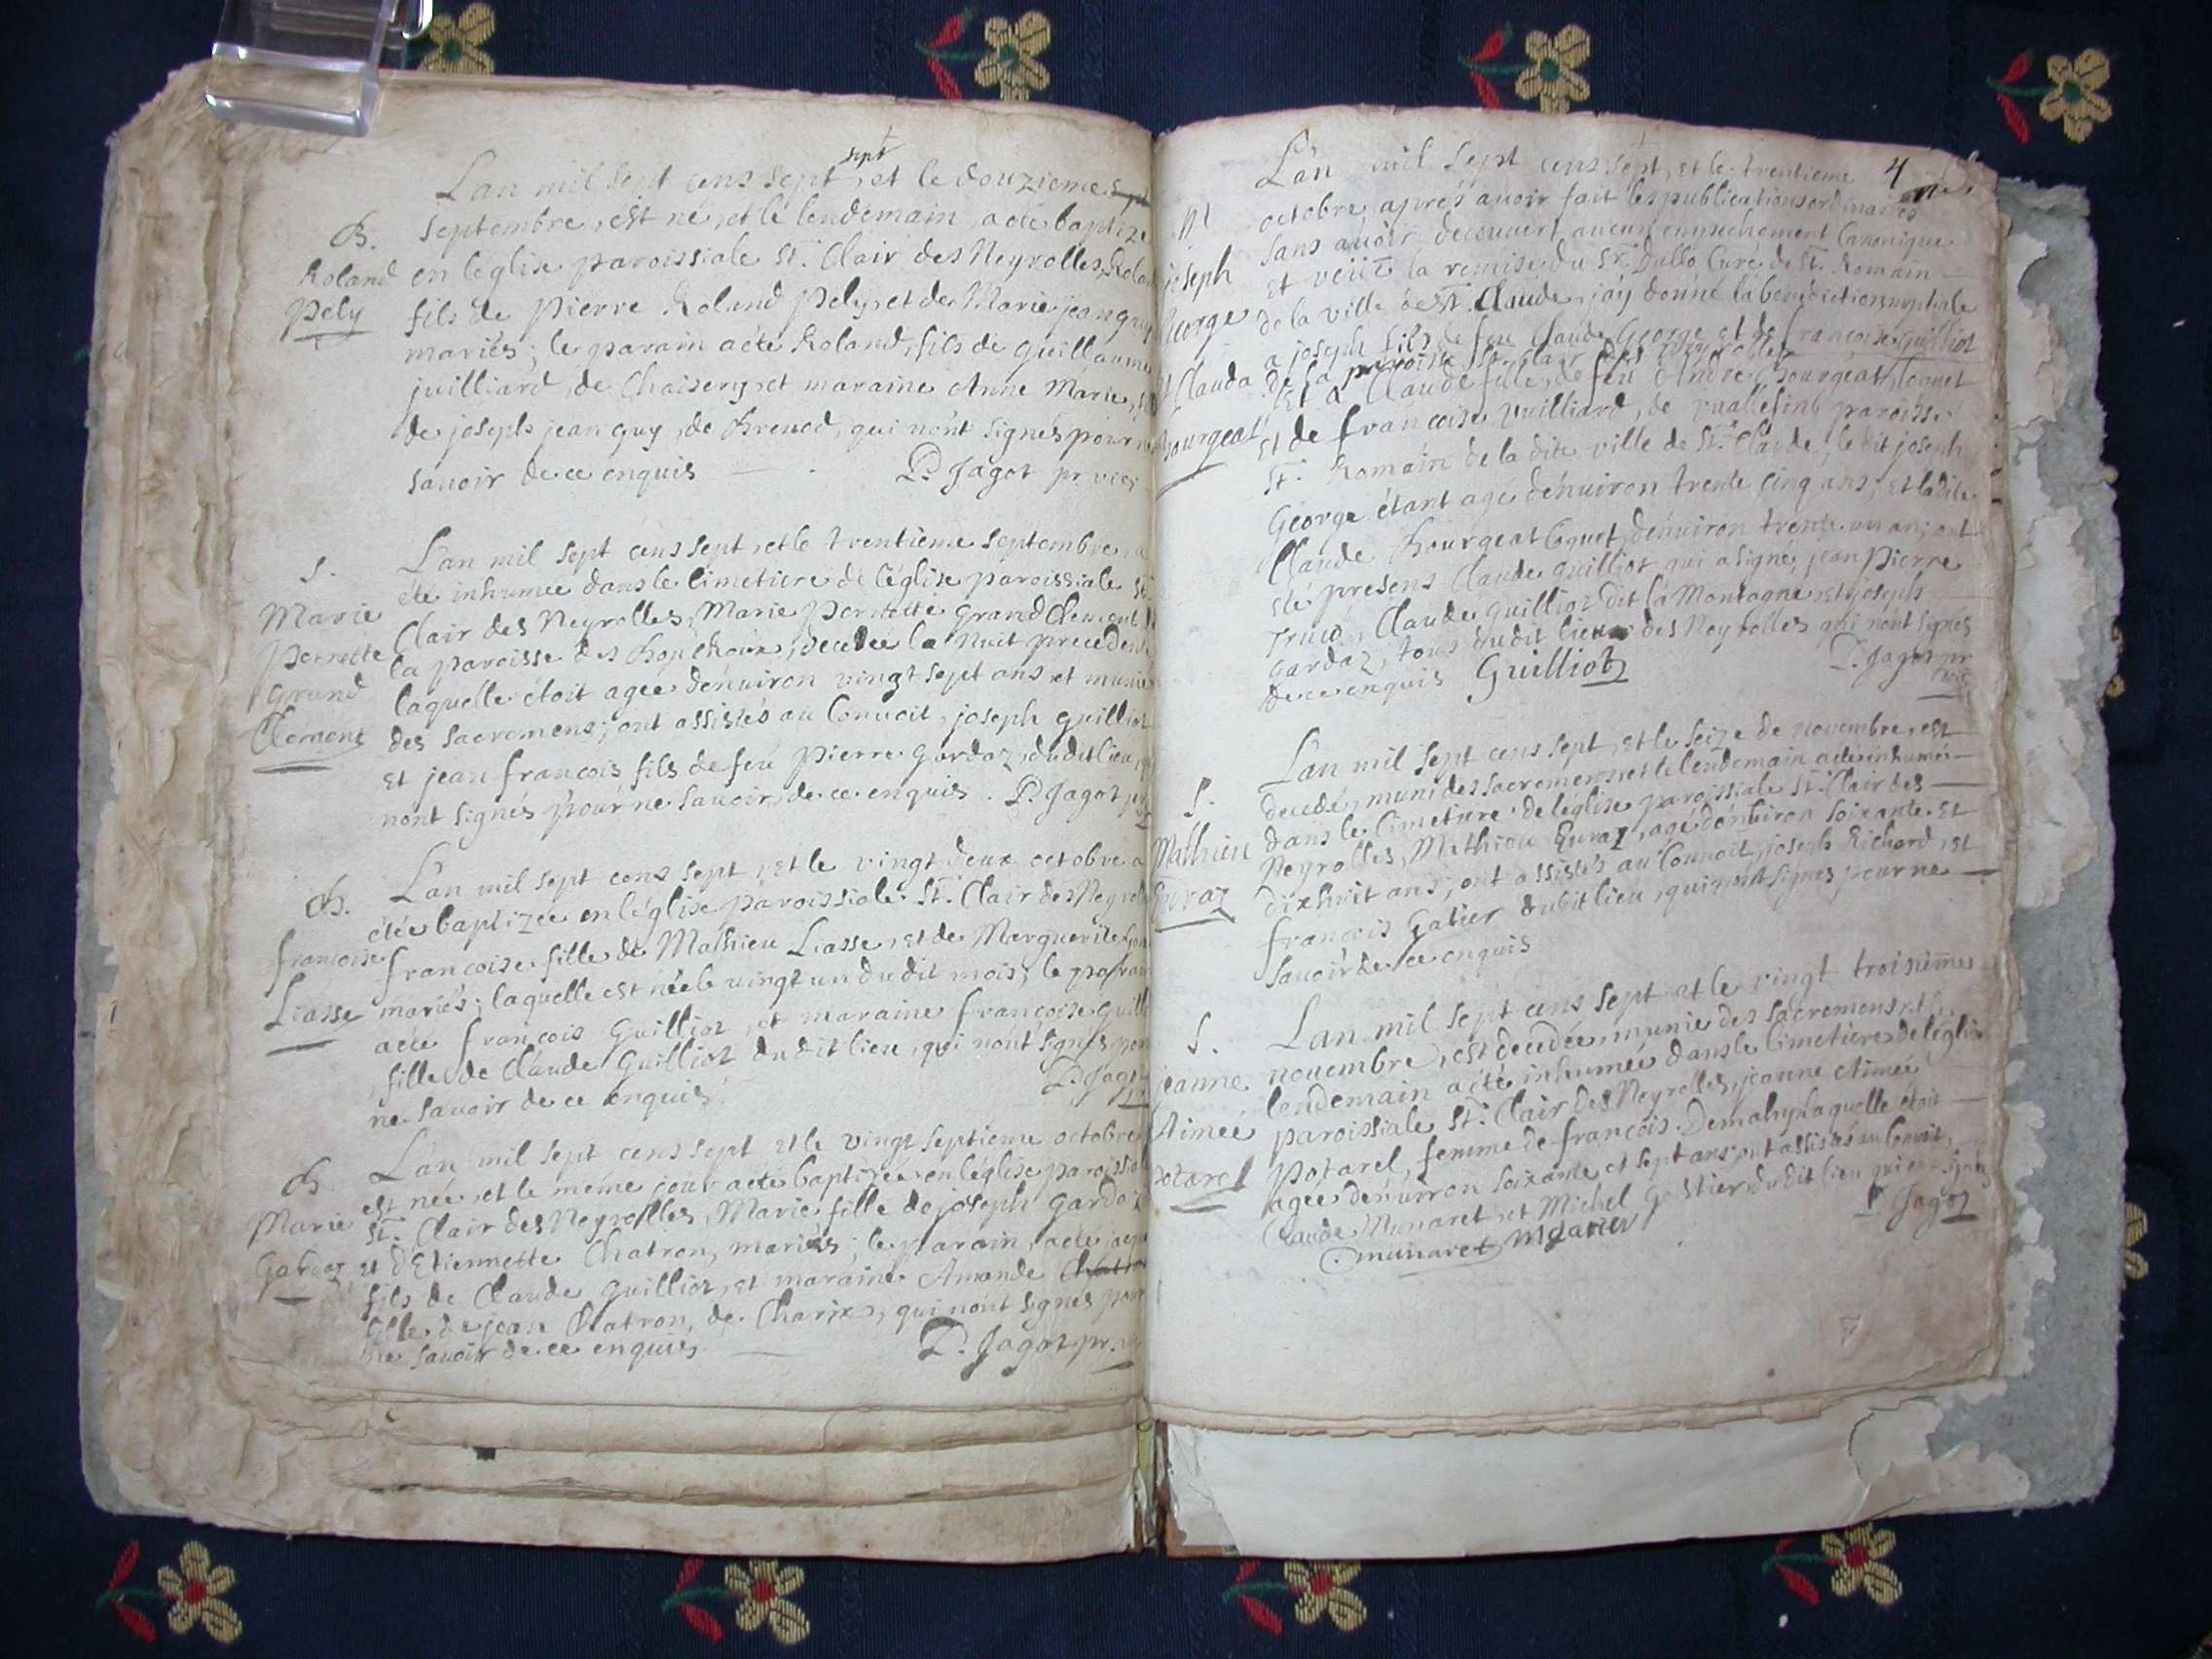 sept
Lan mil sept cens sept, et le douzieme
B. septembre, est né, et le lendemain, a eté baptizé
Roland en léglise paroissiale St. Clair des Neyrolles, Rola
Pely fils de Pierre Roland Pely, et de Marie jeanguy
mariés; le parain a eté Roland, fils de Guillaume
juilliard, de Chaisery, et maraine Anne Marie,
de joseph jean guy, de Brenod, qui n'ont signés pour ne
sauoir de ce enquis P. Jagot pr vic
Lan mil sept cens sept, et le trentieme septembre, a
S. été inhumée dans le Cimetiere de léglise paroissiale St.
Marie Clair des Neyrolles, Marie Pernette Grand Clement
Pernette la paroisse des Bouchoux, decedée la nuit precedente
Grand laquelle étoit agée dénuiron vingt sept ans et munie
Clement des sacremens; ont assistés au Conuoit, joseph Guilliot
et jean francois fils de feu Pierre Gardaz, dudit lieu, qui
nont signés pour ne sauoir, de ce enquis. P. Jagot pr
Lan mil sept cens sept, et le vingt deux octobre a
B. étée baptizée en léglise paroissiale St. Clair des Neyrolles
francoise francoise fille de Mathieu Liasse, et de Marguerite
Liasse mariés; laquelle est née le vingt un du dit mois; le parain
a eté francois Guilliot, et maraine francoise Guill
fille de Claude Guilliot du dit lieu, qui nónt signés pour
ne sauoir de ce enquis P. Jagot
Lan mil sept cens sept et le vingt septieme octobre
B. est née, et le méme jour a eté baptizée en léglise paroissiale
Marie St. Clair des Neyrolles, Marie fille de joseph Gardaz
Gardaz et dEtiennette Chatron, mariés; le parain, a eté
fils de Claude Guilliot, et maraine Amande Chatron
fille de jean Chatron, de Charix, qui nónt signés pour
ne sauoir de ce enquis P. Jagot pr. vic
4
Lan mil sept cens sept, et le trentieme
M octobre, aprés auoir fait les publications ordinaires
joseph sans auoir decouuert aucun empechement Canonique
et veüe la remise du Sr. Dallo Curé de St. Romain
George de la ville de St. Claude, jáy donné la benediction nuptiale
a joseph fils de feu Claude George et de francoise Guilliot
de la paroisse St. Clair des Neyrolles
et Clauda et a Claude fille, de feu André Bourgeat Coquet
Bourgeat et de francoise Vuilliard, de paroisse
St. Romain de la dite ville de St. Claude, le dit joseph
George étant agé dénuiron trente cinq ans, et ladite
Claude Bourgeat Coquet, dénuiron trente un an; ont
été presens Claude Guilliot qui a signé, jean Pierre
Claude Guilliot dit la Montagne, et joseph
Gardaz, tous dudit lieu des Neyrolles qui nónt signés
de ce enquis Guilliot P. Jagot pr
vic
Lan mil sept cens sept, et le seize de nouembre, est
S. decedé, muni des sacremens, et le lendemain a eté inhumé
Mathieu dans le Cimetiere de léglise paroissiale St. Clair des
Neyrolles, Mathieu Euraz, agé dénuiron soixante et
Euraz dixhuit ans; ont assistés au Conuoit, joseph Richard, et
francois Gatier dudit lieu, qui nont signés pour ne
sauoir de ce enquis
Lan mil sept cens sept et le vingt troisieme
S. nouembre, est decedée, munie des sacremens et le
jeanne lendemain a été inhumée dans le Cimetiere de léglise
Aimée paroissiale St. Clair des Neyrolles, jeanne Aimée
Potarel Potarel, femme de francois Demaly, laquelle étoit
agée dénuiron soixante et sept ans; ont assistés au Conuoit
Claude Munaret, et Michel Gattier, dudit lieu qui ont signés
C. munaret M gatier P. Jagot